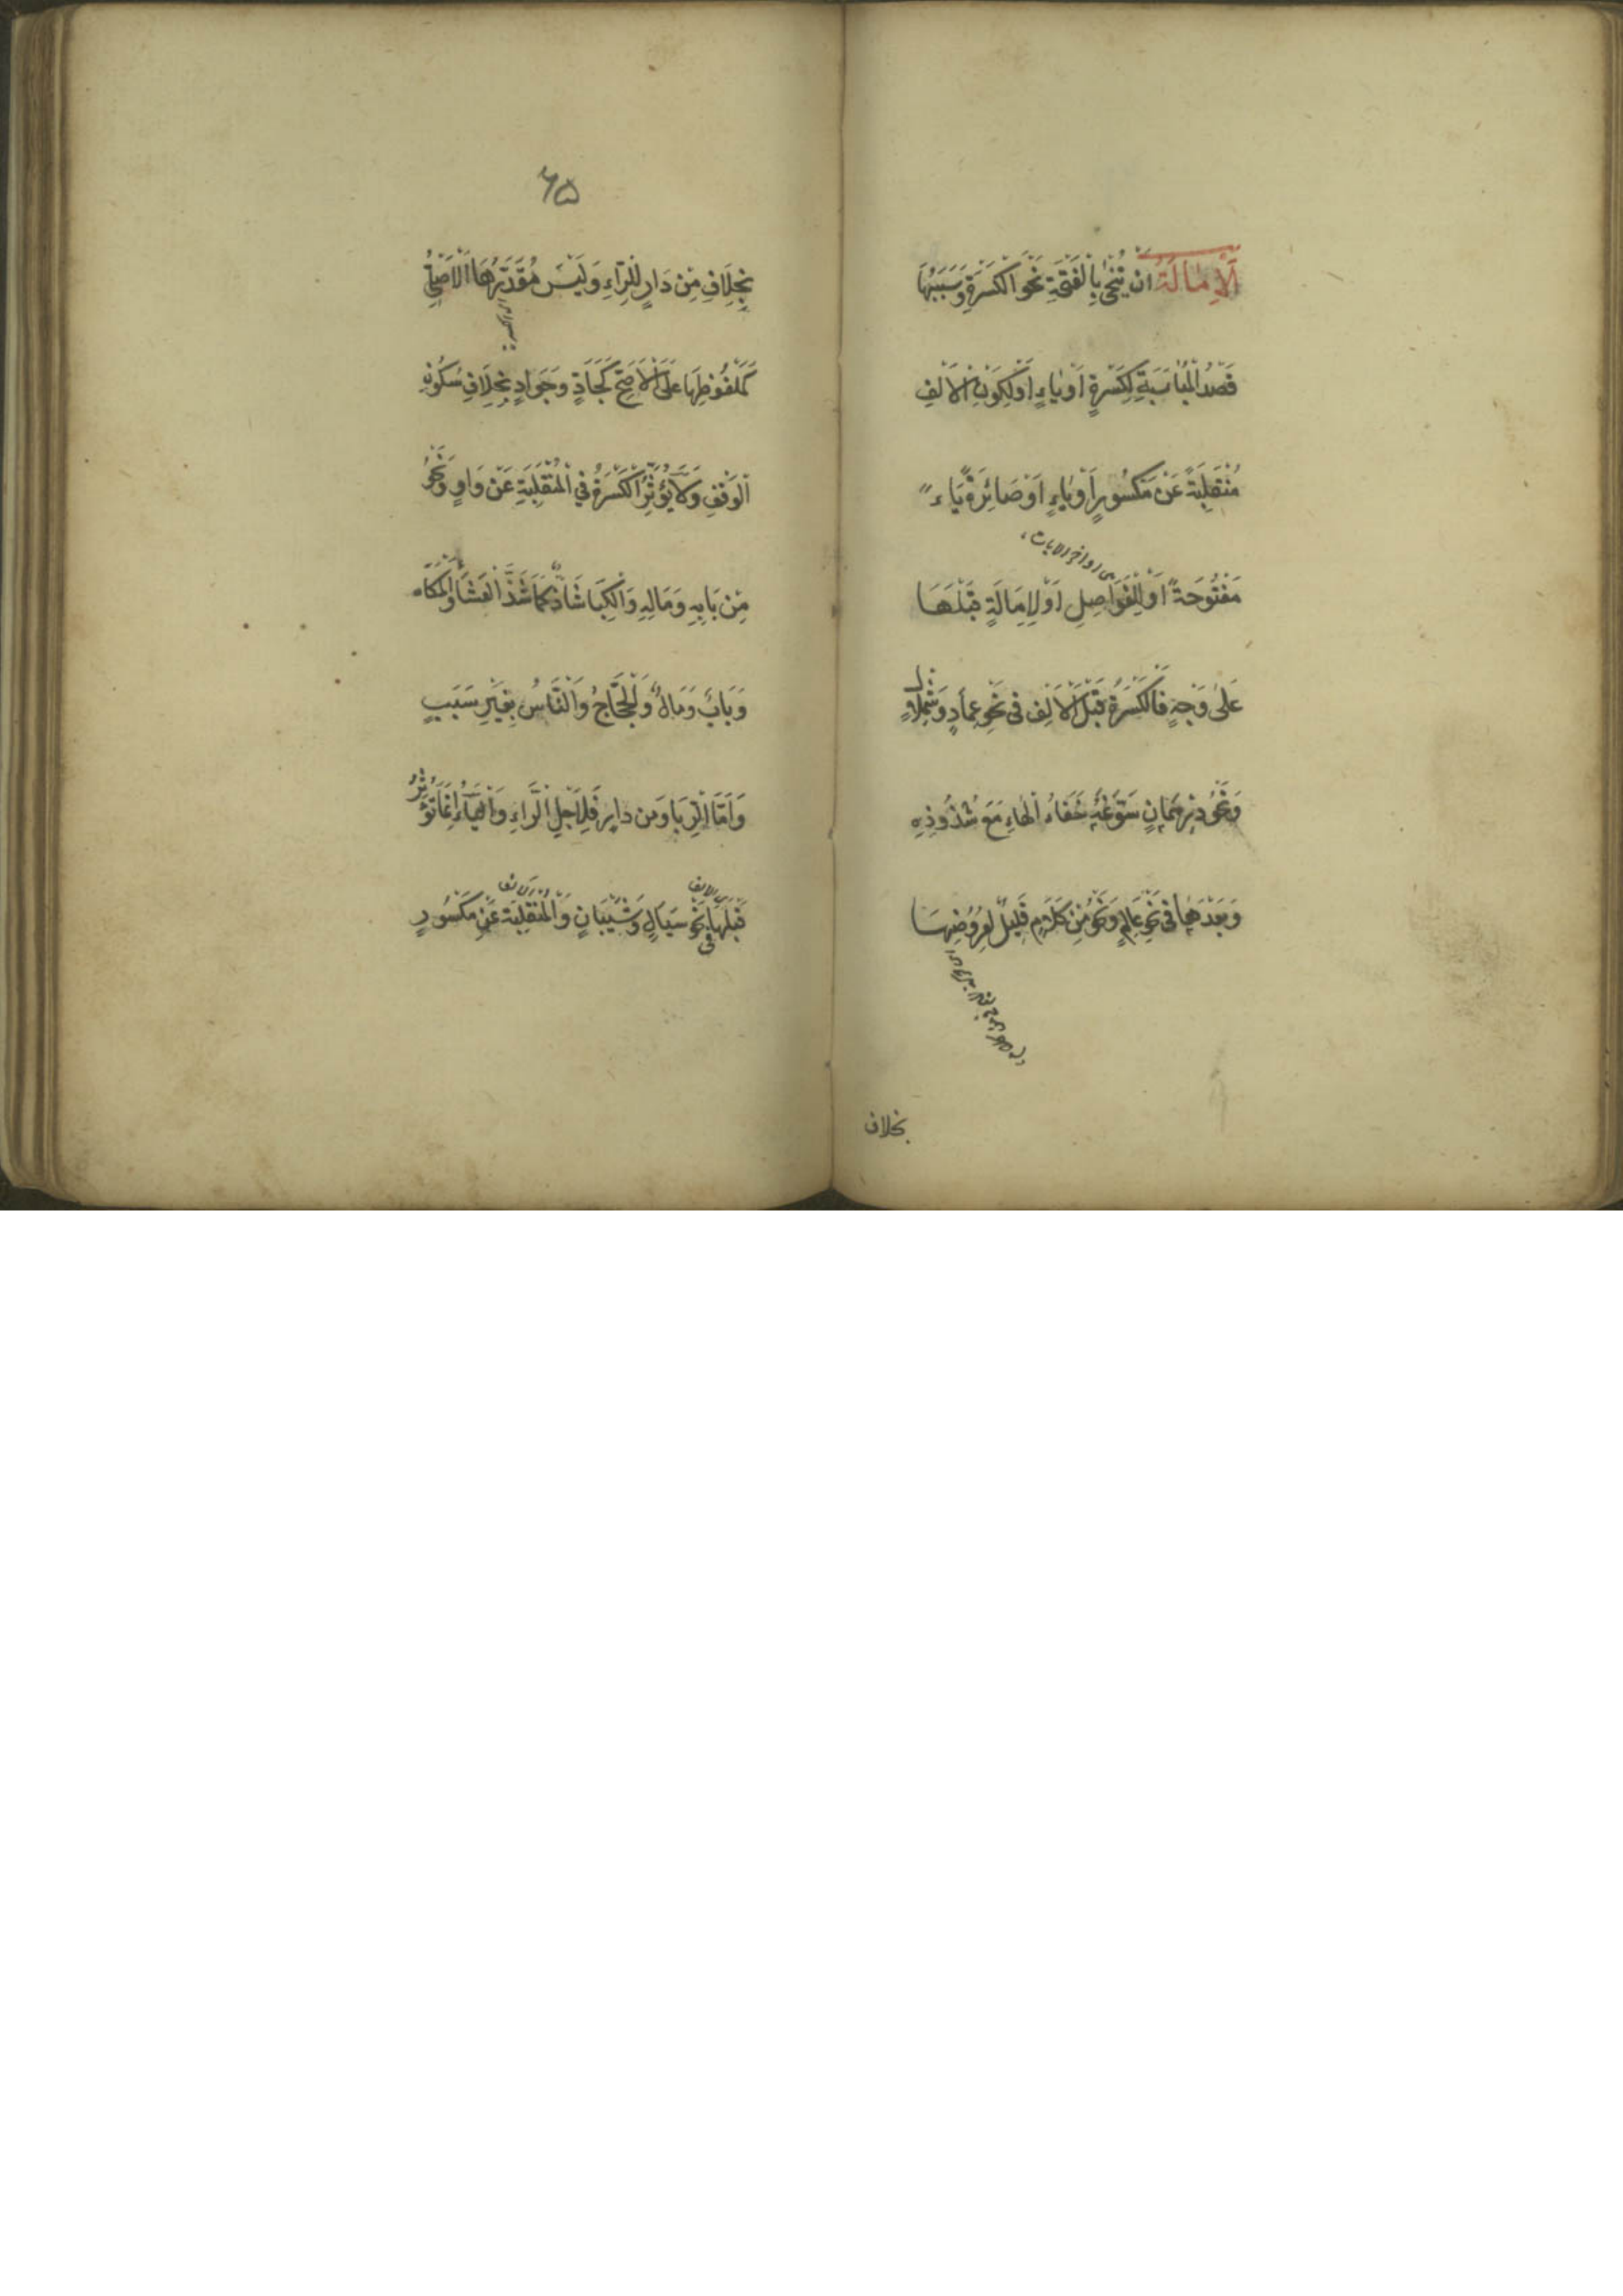 اَلْاِمَالَةُ اَنْ يُنْحٰى بِالْفَتْحَةِ نَحْوَ الْكَسْرَةِ وَسَبَبُهَا
قَصْدُ الْمُنَاسَبَةِ لِكَسْرَةٍ اَوْ يَاءٍ اَوْ لِكَوْنِ الْاَلِفِ
مُنْقَلِبَةً عَنْ مَكْسُورٍ اَوْ يَاءٍ اَوْ صَائِرَةً يَاءً
اى اواخر الايات
مَفْتُوحَةً اَوْ لِلْفَوَاصِلِ اَوْ لِاِمَالَةٍ قَبْلَهَا
عَلٰى وَجْهٍ فَالْكَسْرَةُ قَبْلَ الْاَلِفِ فى نَحْوِ عِمَادٍ وَشِمْلَالٍ
وَنَحْوُ دِرْهَمَانِ سَوَّغَهُ خَفَاءُ الْهَاءِ مَعَ شُذُوذِهِ
وَبَعْدَهَا فى نَحْوِ عَالِمٍ وَنَحْوُ مِنْ كَلَامٍ قَلِيلٌ لِعُرُوضِهَا
بخلاف
٦٥
بِخِلَافِ مِنْ دَارٍ لِلرَّاءِ وَلَيْسَ مُقَدَّرُهَا الْاَصْلِىُّ
كَمَلْفُوظِهَا عَلَى الْاَصَحِّ كَجَادٍّ وَجَوَادٍّ بِخِلَافِ سُكُونِ
الْوَقْفِ وَلَا يُؤَثِّرُ الْكَسْرَةُ فِي الْمُنْقَلِبَةِ عَنْ وَاوٍ وَنَحْوُ
مِنْ بَابِهِ وَمَالِهِ وَالْكِبَا شَاذٌّ كَمَا شَذَّ الْعَشَا وَالْمَكَا
وَبَابٌ وَمَالٌ وَالْحَجَّاجُ وَالنَّاسُ بِغَيْرِ سَبَبٍ
وَاَمَّا الرِّبَا وَمِنْ دَارٍ فَلِاَجْلِ الرَّاءِ وَالْيَاءُ اِنَّمَا تُؤَثِّرُ
اى الالف
قَبْلَهَا فى نَحْوِ سَيَالٍ وَشَيْبَانٍ وَالْمُنْقَلِبَةُ عَنْ مَكْسُورٍ